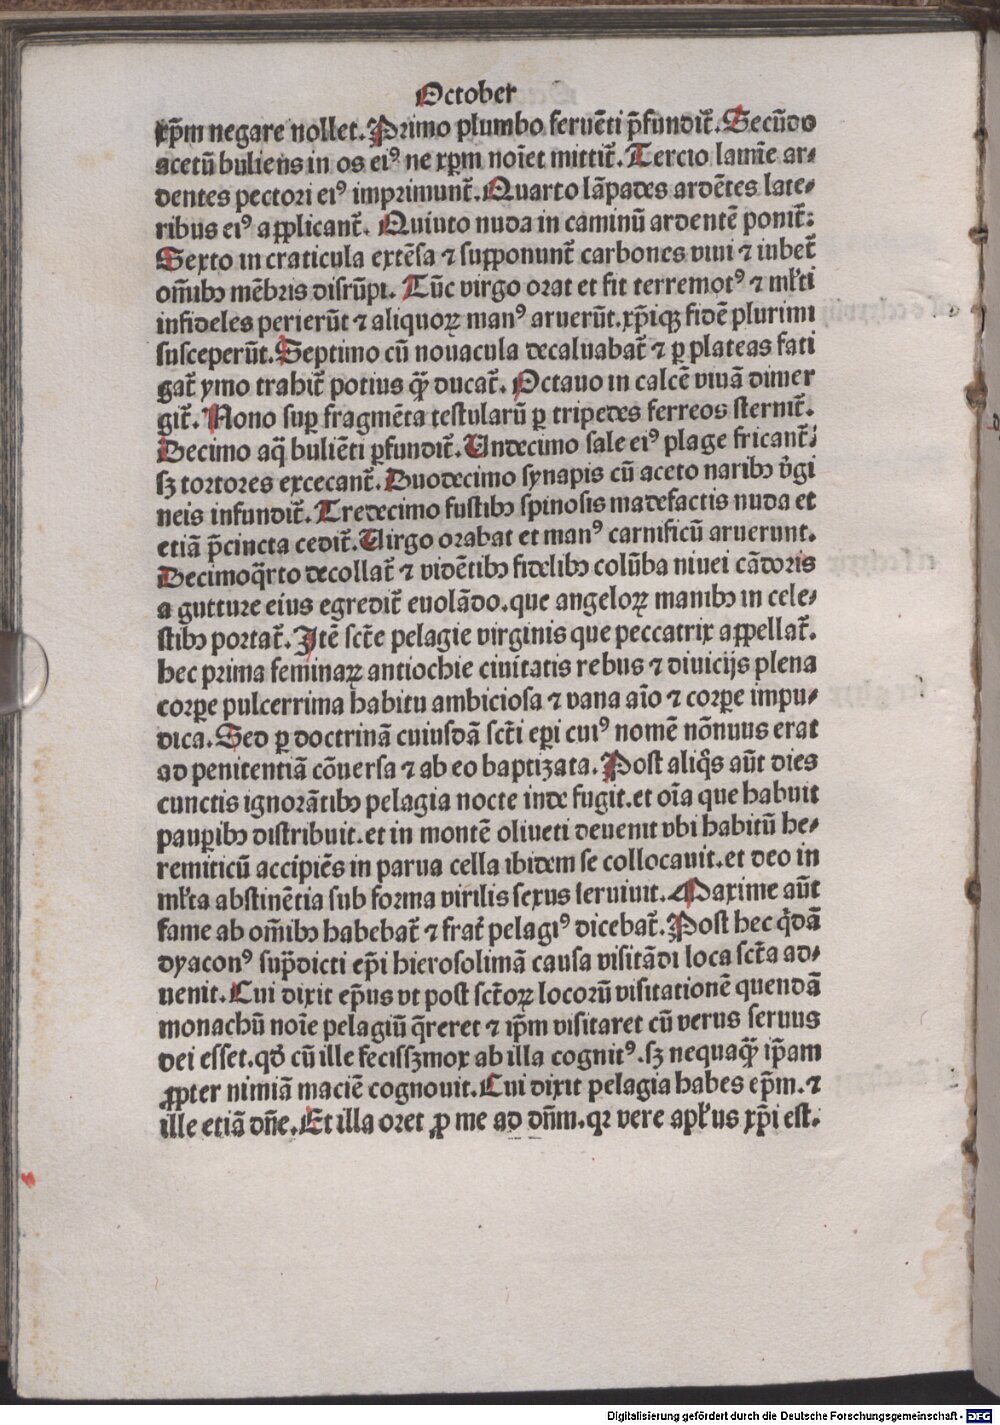 October
xp̄m negare nollet. Primo plumbo feruēti p̄fundit᷑. Secūdo
acetū buliens in os eiꝰ ne xp̄m noīet mittit᷑. Tercio lamīe ar⸗
dentes pectori eiꝰ imprimunt᷑. Quarto lāpades ardētes late⸗
ribus eiꝰ applicant᷑. Quiuto nuda in caminū ardentē ponit᷑:
Sexto in craticula extēsa ⁊ supponunt᷑ carbones viui ⁊ iubet᷑
oīmibꝰ mēbris disrūpi. Tūc virgo orat et fit terremotꝰ ⁊ mĺti
infideles perierūt ⁊ aliquoꝝ manꝰ aruerūt. xp̄iqꝫ fidē plurimi
susceperūt. Septimo cū nouacula decaluabat᷑ ⁊ ꝑ plateas fati
gat᷑ ymo trahit᷑ potius q̄ꝫ ducat᷑. Octauo in calcē viuā dimer
git᷑. Nono suꝑ fragmēta testularū ꝑ tripedes ferreos sternit᷑.
Decimo aq̄ buliēti ꝑfundit᷑. Undecimo sale eiꝰ plage fricant᷑:
sꝫ tortores excecant᷑. Duodecimo synapis cū aceto naribꝰ v̄gi
neis infundit᷑. Tredecimo fustibꝰ spinosis madefactis nuda et
etiā p̄cincta cedit᷑. Uirgo orabat et manꝰ carnificū aruerunt.
Decimoq̄rto decollat᷑ ⁊ vidētibꝰ fidelibꝰ colūba niuei cādoris
a gutture eius egredit᷑ euolādo. que angeloꝝ manibꝰ in cele⸗
stibꝰ portat᷑. Itē sct̄e pelagie virginis que peccatrix appellat᷑.
hec prima feminaꝝ antiochie ciuitatis rebus ⁊ diuicijs plena
corpe pulcerrima habitu ambiciosa ⁊ vana aīo ⁊ corpe impu⸗
dica. Sed ꝑ doctrinā cuiusdā sct̄i epi cuiꝰ nomē nōnuus erat
ad penitentiā cōuersa ⁊ ab eo baptizata. Post aliq̄s aūt dies
cunctis ignorātibꝰ pelagia nocte inde fugit. et oīa que habuit
pauꝑibꝰ distribuit. et in montē oliueti deuenit vbi habitū he⸗
remiticū accipiēs in parua cella ibidem se collocauit. et deo in
mĺta abstinētia sub forma virilis sexus seruiuit. Maxime aūt
fame ab oīmibꝰ habebat᷑ ⁊ frat᷑ pelagiꝰ dicebat᷑. Post hec q̇dā
dyaconꝰ sup̄dicti ep̄i hierosolimā causa visitādi loca sct̄a ad⸗
uenit. Cui dixit ep̄us vt post sct̄oꝝ locorū visitationē quendā
monachū noīe pelagiū q̄reret ⁊ ip̄m visitaret cū verus seruus
dei esset. qđ cū ille fecissꝫ mox ab illa cognitꝰ. sꝫ nequaq̄ꝫ ip̄am
ꝓpter nimiā maciē cognouit. Cui dixit pelagia habes ep̄m. ⁊
ille etiā dn̄e. Et illa oret ꝓ me ad dn̄m. qꝛ vere apĺus xp̄i est.
Digitalisierung gefördert durch die Deutsche Forschungsgemeinschaft - DFG